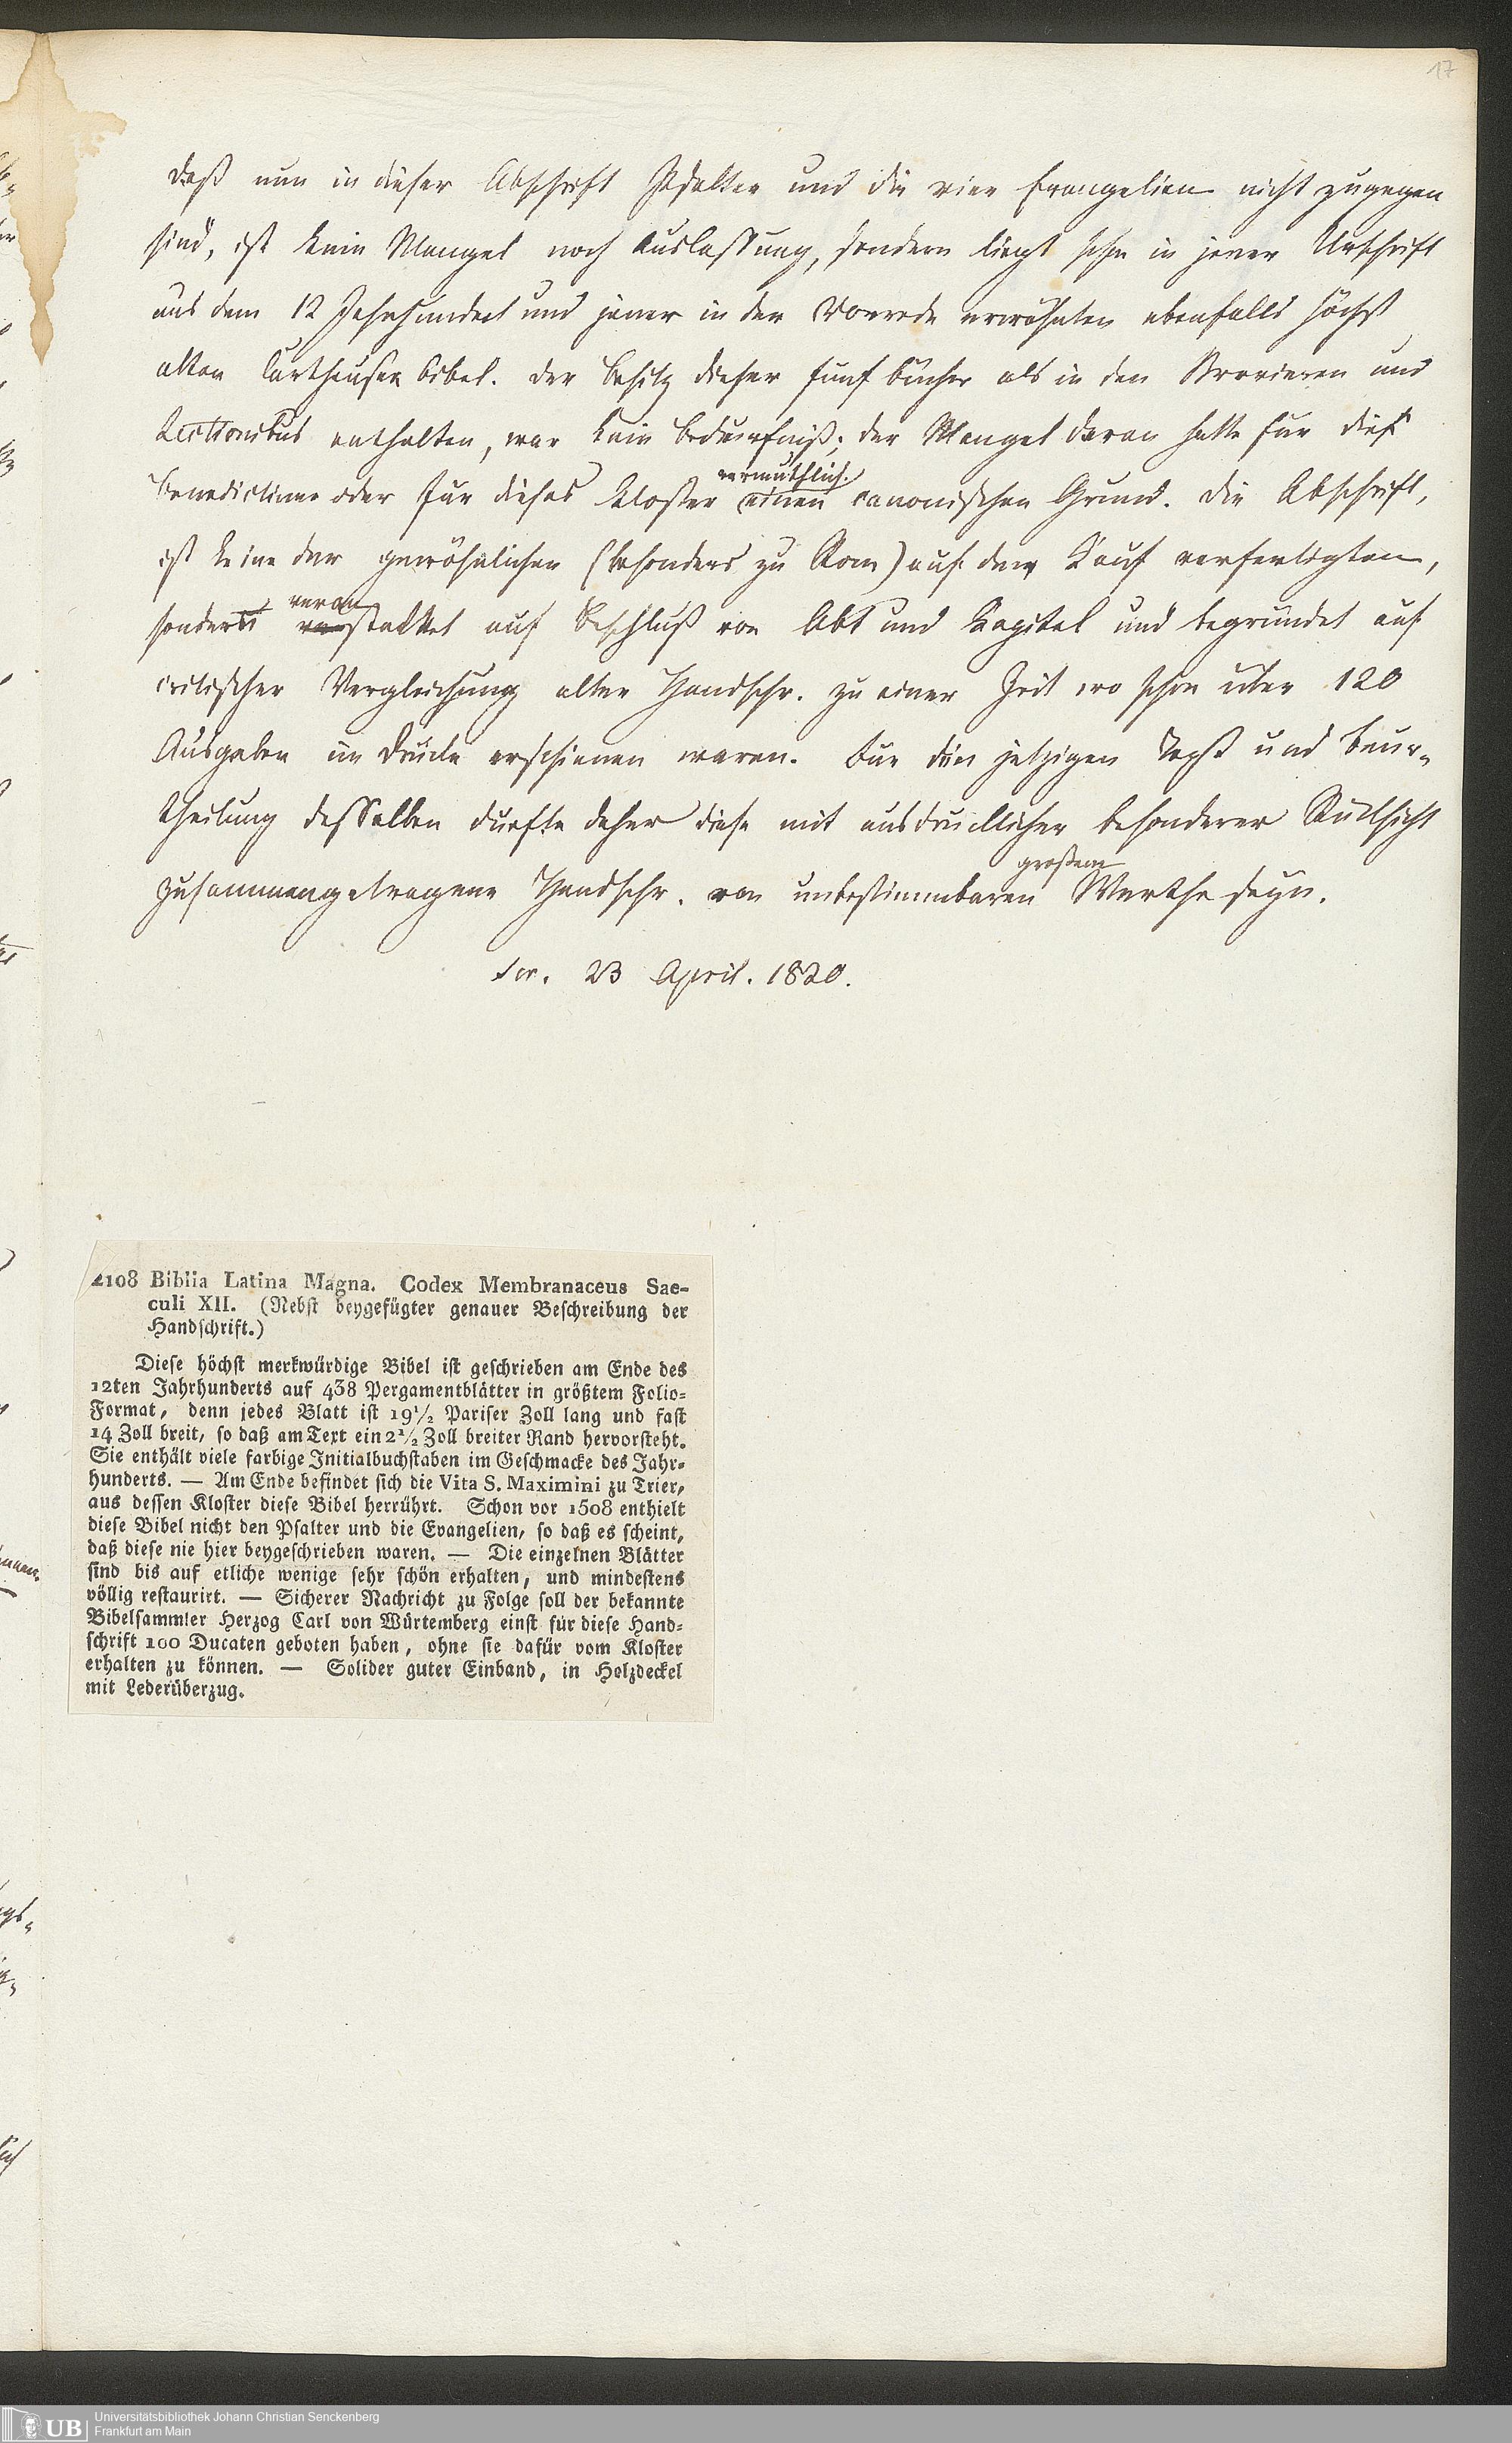 17
daß nun in dieser Abschrift Psalter und die vier Evangelien nicht zugegen
sind, ist kein Mangel noch Auslassung, sondern liegt schon in jener Urschrift
aus dem 12 Jahrhundert und jener in der Vorrede erwähnten ebenfalls höchst
alten Carthäuser bibel. der besitz dieser fünf bücher als in den Brevieren und
Lectionibus enthalten, war kein bedürfniß; der Mangel daran hatte für diese
vermuthlich.
benedictiner oder für dieses Kloster einen canonischen Grund. die Abschrift,
ist keine der gewöhnlichen (besonders zu Rom) auf den Kauf verfertigten,
veran
sondern staltet auf beschluß von Abt und Kapitel und begründet auf
critischer Vergleichung alter Handschr. zu einer Zeit wo schon über 120
Ausgaben im Drucke erschienen waren. Für den jetzigen Text und beur-
theilung desselben dürfte daher diese mit ausdrücklicher besonderer Rücksicht
großem
zusammengetragene Handschr. von unbestimmbaren Werthe seyn.
23 April. 1820.
2108 Biblia Latina Magna. Codex Membranaceus Sae-
culi XII. (Nebst beygefügter genauer Beschreibung der
Handschrift.)
Diese höchst merkwürdige Bibel ist geschrieben am Ende des
12ten Jahrhunderts auf 438 Pergamentblätter in größtem Folio-
Format, denn jedes Blatt ist 19 1/2 Pariser Zoll lang und fast
14 Zoll breit, so daß am Text ein 2 1/2 Zoll breiter Rand hervorsteht.
Sie enthält viele farbige Initialbuchstaben im Geschmacke des Jahr-
hunderts. — Am Ende befindet sich die Vita S. Maximini zu Trier,
aus dessen Kloster diese Bibel herrührt. Schon vor 1508 enthielt
diese Bibel nicht den Psalter und die Evangelien, so daß es scheint,
daß diese nie hier beygeschrieben waren. — Die einzelnen Blätter
sind bis auf etliche wenige sehr schön erhalten, und mindestens
völlig restaurirt. — Sicherer Nachricht zu Folge soll der bekannte
Bibelsammler Herzog Carl von Würtemberg einst für diese Hand-
schrift 100 Ducaten geboten haben, ohne sie dafür vom Kloster
erhalten zu können. — Solider guter Einband, in Holzdeckel
mit Lederüberzug.
UB Universitätsbibliothek Johann Christian Senckenberg
Frankfurt am Main